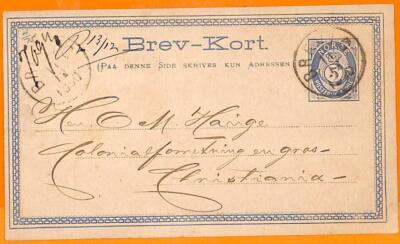 R 13/12
Brev-Kort.
(Paa denne Side skrives kun Adressen.)
NORGE
5
Herr O M. Hauge
Colonialforretning en gros
Christiania